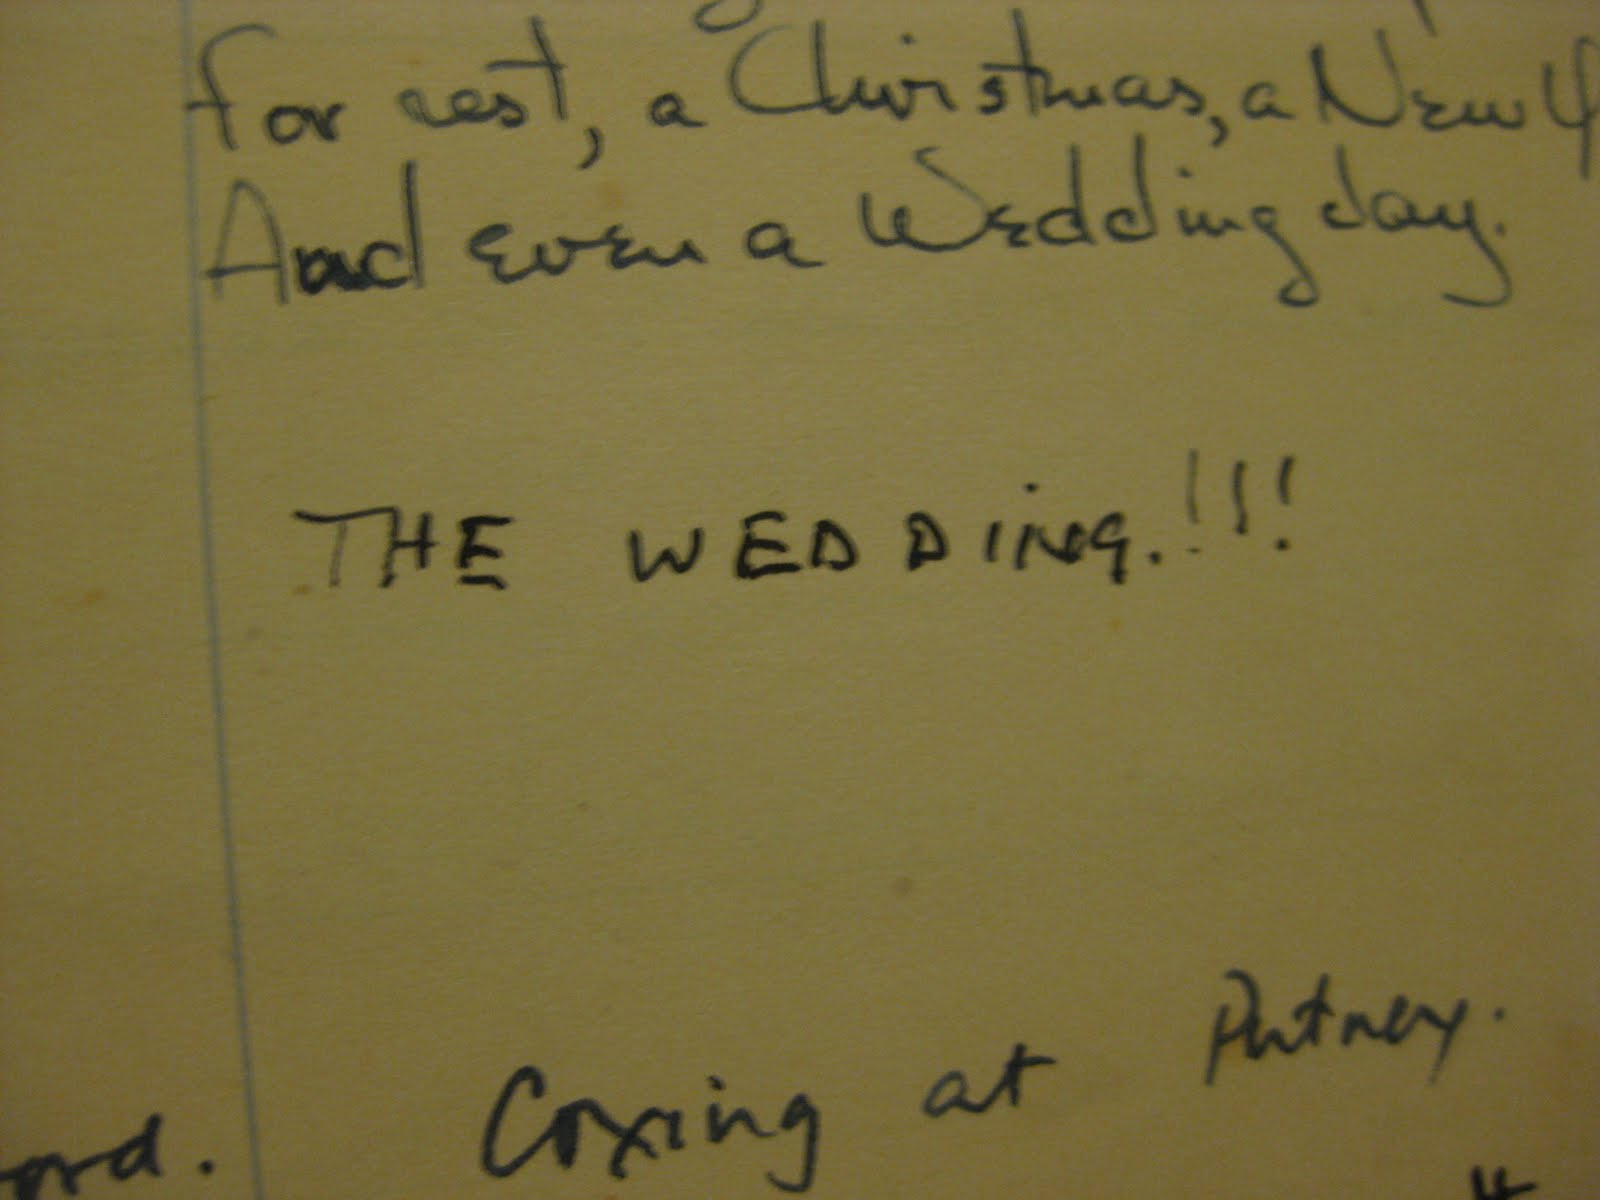 for rest, a Christmas, a New Y
And even a Wedding day.
THE WEDDING.!!!
Coxing at Putney.
ord.